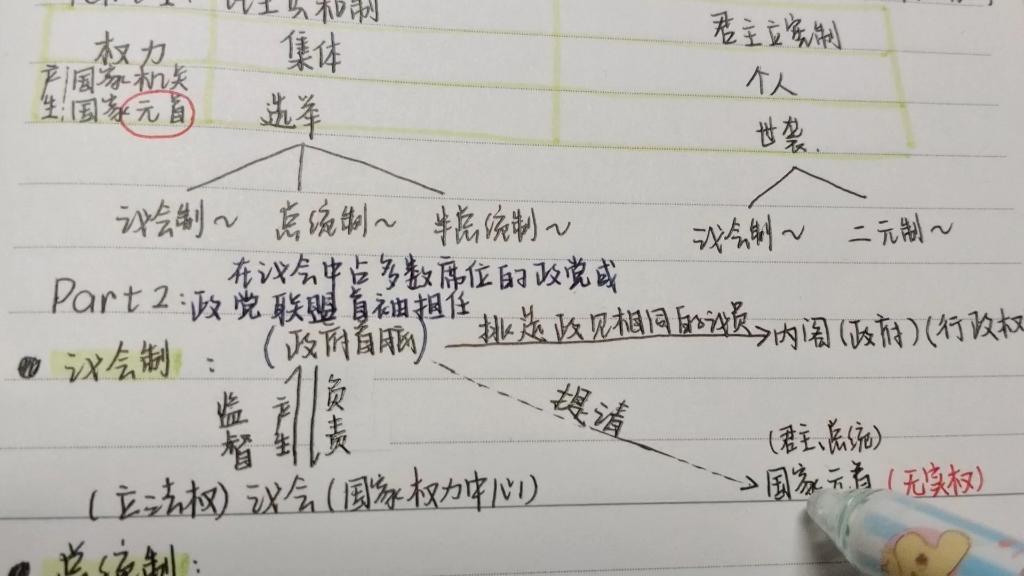 民主共和制
君主立宪制
权力 集体 个人
产 国家机关
生:国家元首 选举 世袭.
议会制~ 总统制~ 半总统制~ 议会制~ 二元制~
在议会中占多数席位的政党或
Part2:政党联盟首袖担任
议会制 : (政府首脑) 挑选政见相同的议员 内阁(政府)(行政权
监督 产生 负责 提请
(君主、总统)
(立法权) 议会(国家权力中心) 国家元首 (无实权)
总统制: